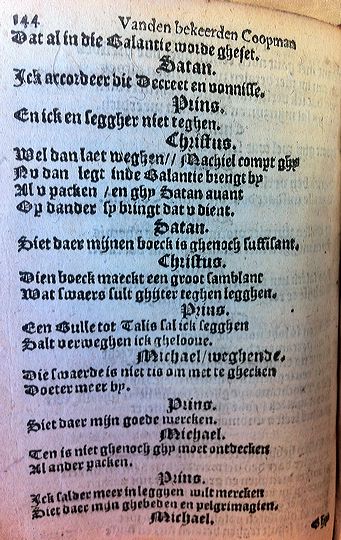 144 Vanden bekeerden Coopman
Dat al in die Balantie worde gheset.
Satan.
Ick accordeer dit Decreet en vonnisse.
Prins.
En ick en seggher niet teghen.
Christus.
Wel dan laet weghen // Machiel compt ghy
Nu dan legt inde Balantie brengt by
Al u packen / en ghy Satan auant
Op dander sy bringt dat u dient.
Satan.
Siet daer mynen boeck is ghenoch suffisant.
Christus.
Dien boeck maeckt een groot samblant
Wat swaers sult ghyter teghen legghen.
Prins.
Een Bulle tot Talis sal ick segghen
Salt verweghen ick gheloove.
Michael / weghende.
Die swaerde is niet tis om met te ghecken
Doeter meer by.
Prins.
Siet daer mijn goede wercken.
Michael.
Ten is niet ghenoch ghy moet ontdecken
Al ander packen.
Prins.
Ick salder meer in legghen wilt mercken
Siet daer mijn ghebeden en pelgrimagien.
Michael.